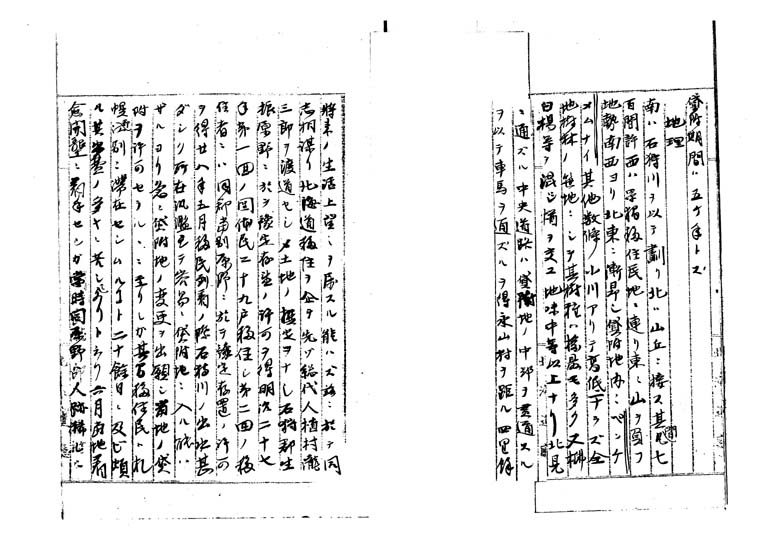 貸付期間ハ五ケ年トス
地理
南ハ石狩川ヲ以テ劃リ北ハ山丘ニ接ス其間七
百間許西ハ単独移住民地ニ連リ東ニ山ヲ負フ
地勢南西ヨリ北東ニ漸昂シ貸付地内ニペンケ
オムナイ其他数條ノ小川アリテ高低一ナラズ全
地樹林ノ笹地ニシテ其樹種ハ楢最モ多ク又柳
白楊等ヲ混シ樹ヲ交ユ地味中等以上ナリ北見
ニ通ズル中央道路ハ貸付地ノ中部ヲ貫通スル
ヲ以テ車馬ヲ通ズルヲ得永山村ヲ距ル四里餘
將来ノ生活上望ミヲ属スル能ハズ茲ニ於テ同
志相謀リ北海道移住ヲ企テ先ヅ総代人植村
三郎ヲ渡道セシメ土地ノ撰定ヲナシ石狩郡生
振原野ニ於テ豫定存置ノ許可ヲ得明治二十七
年第一回ノ団体民二十九戸移住シ第二回ノ移
住者ニハ同郡当別原野ニ於テ豫定存置ノ許可
ヲ得廿八年五月移民到着ノ際石狩川ノ出水甚
ダシク所在氾濫已テ容易ニ貸付地ニ入ル能ハ
ザルヨリ急ニ貸付地ノ変更ヲ出願シ当地ノ貸
付ヲ許可セラルヽニ至リシガ其百移住民ハ札
幌近別ニ滞在センムルコト二十餘日ニ及ビ煩
ル其出費ノ多キニ苦シメリトイフ六月当地着
開墾ニ着手センガ当時同原野ハ人跡稀少ニ